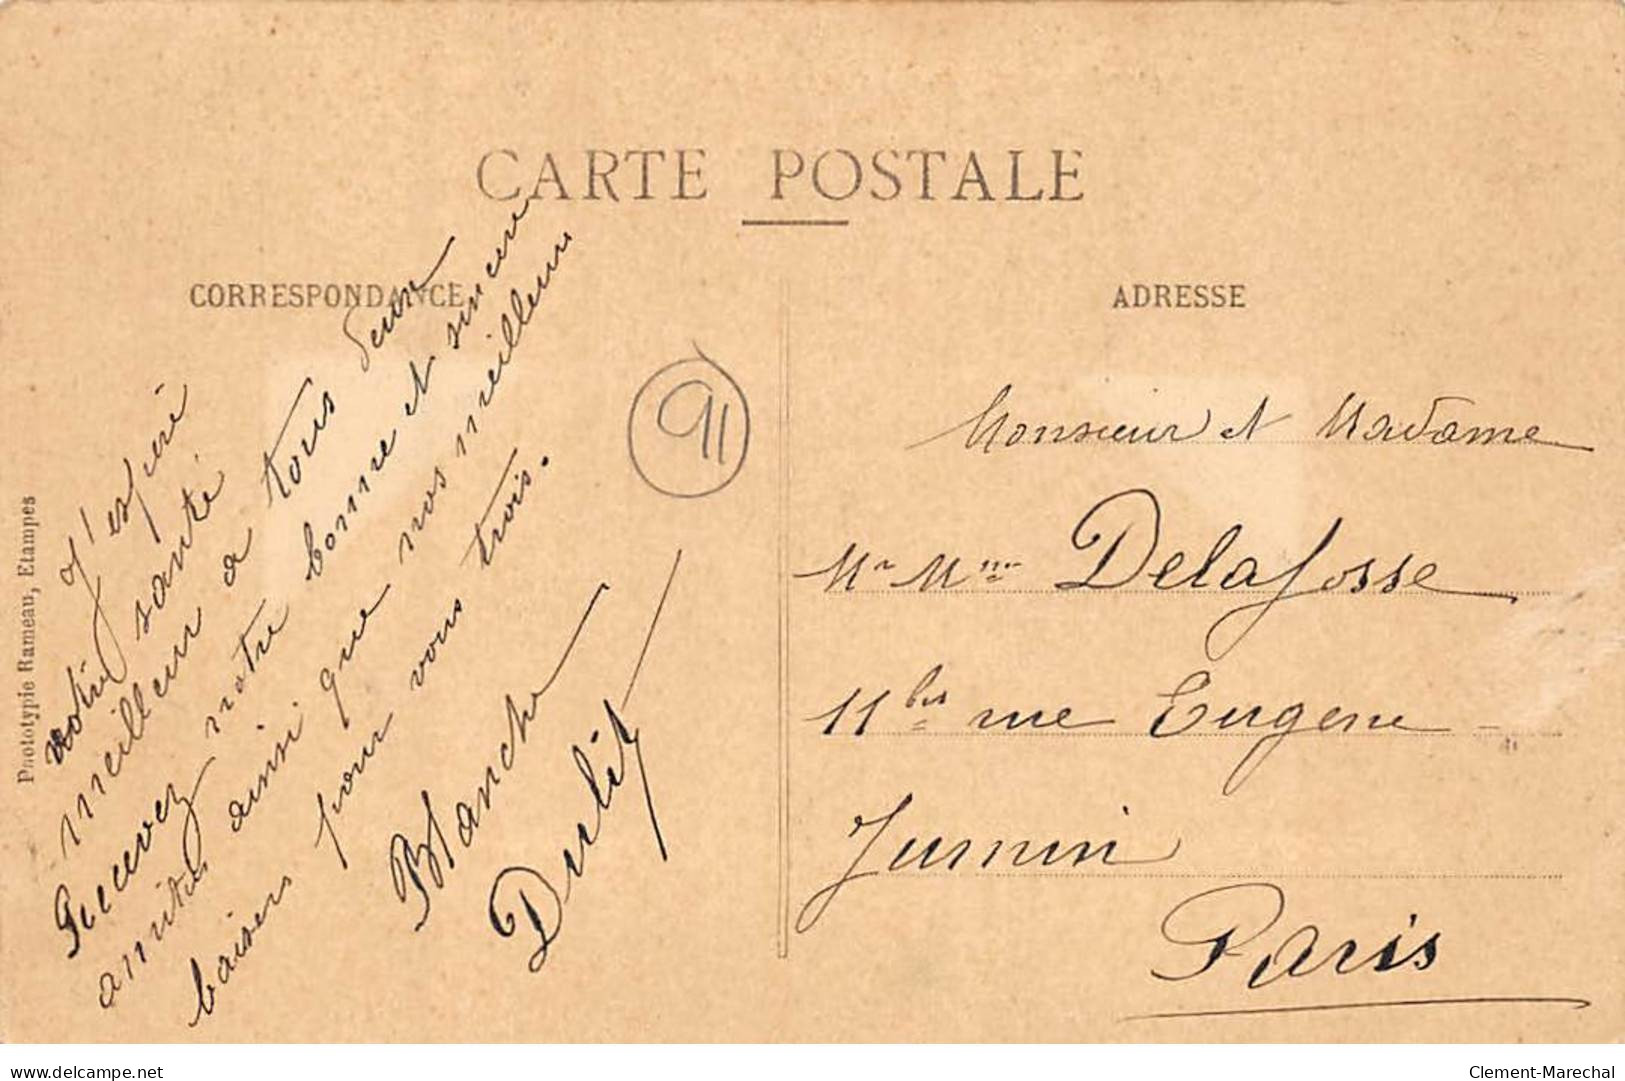 CARTE POSTALE
CORRESPONDANCE
J'espère
votre santé
meilleur a tous
Recevez notre bonne et sincère
amitié ainsi que nos meilleurs
baisers pour vous trois.
Blanche
91
ADRESSE
Monsieur et Madame
Mr Mme Delafosse
11 bis rue Eugene
Jumin
Paris
Phototypie Rameau, Etampes
delcampe.net
Clement-Marechal